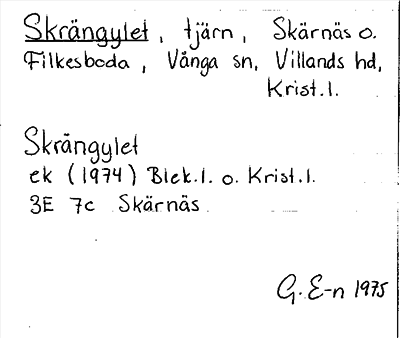 Skrängylet, tjärn, Skärnäs o.
Filkesboda, Vånga sn, Villands hd,
Krist.l.
Skrängylet
ek (1974) Blek.l. o. Krist.l.
3E 7c Skärnäs
G. E-n 1975